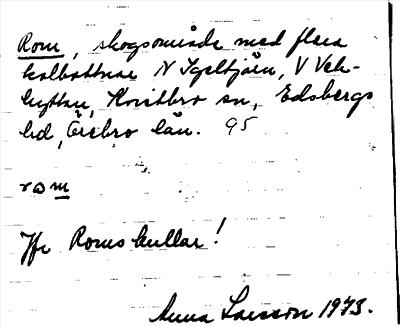 Rom, skogsområde med flera
kolbottnar N Igeltjärn, V Vek-
hyttan, Kvistbro sn, Edsbergs
hd, Örebro län. 95
rom
Jfr Romskullar!
Anna Larsson 1973.